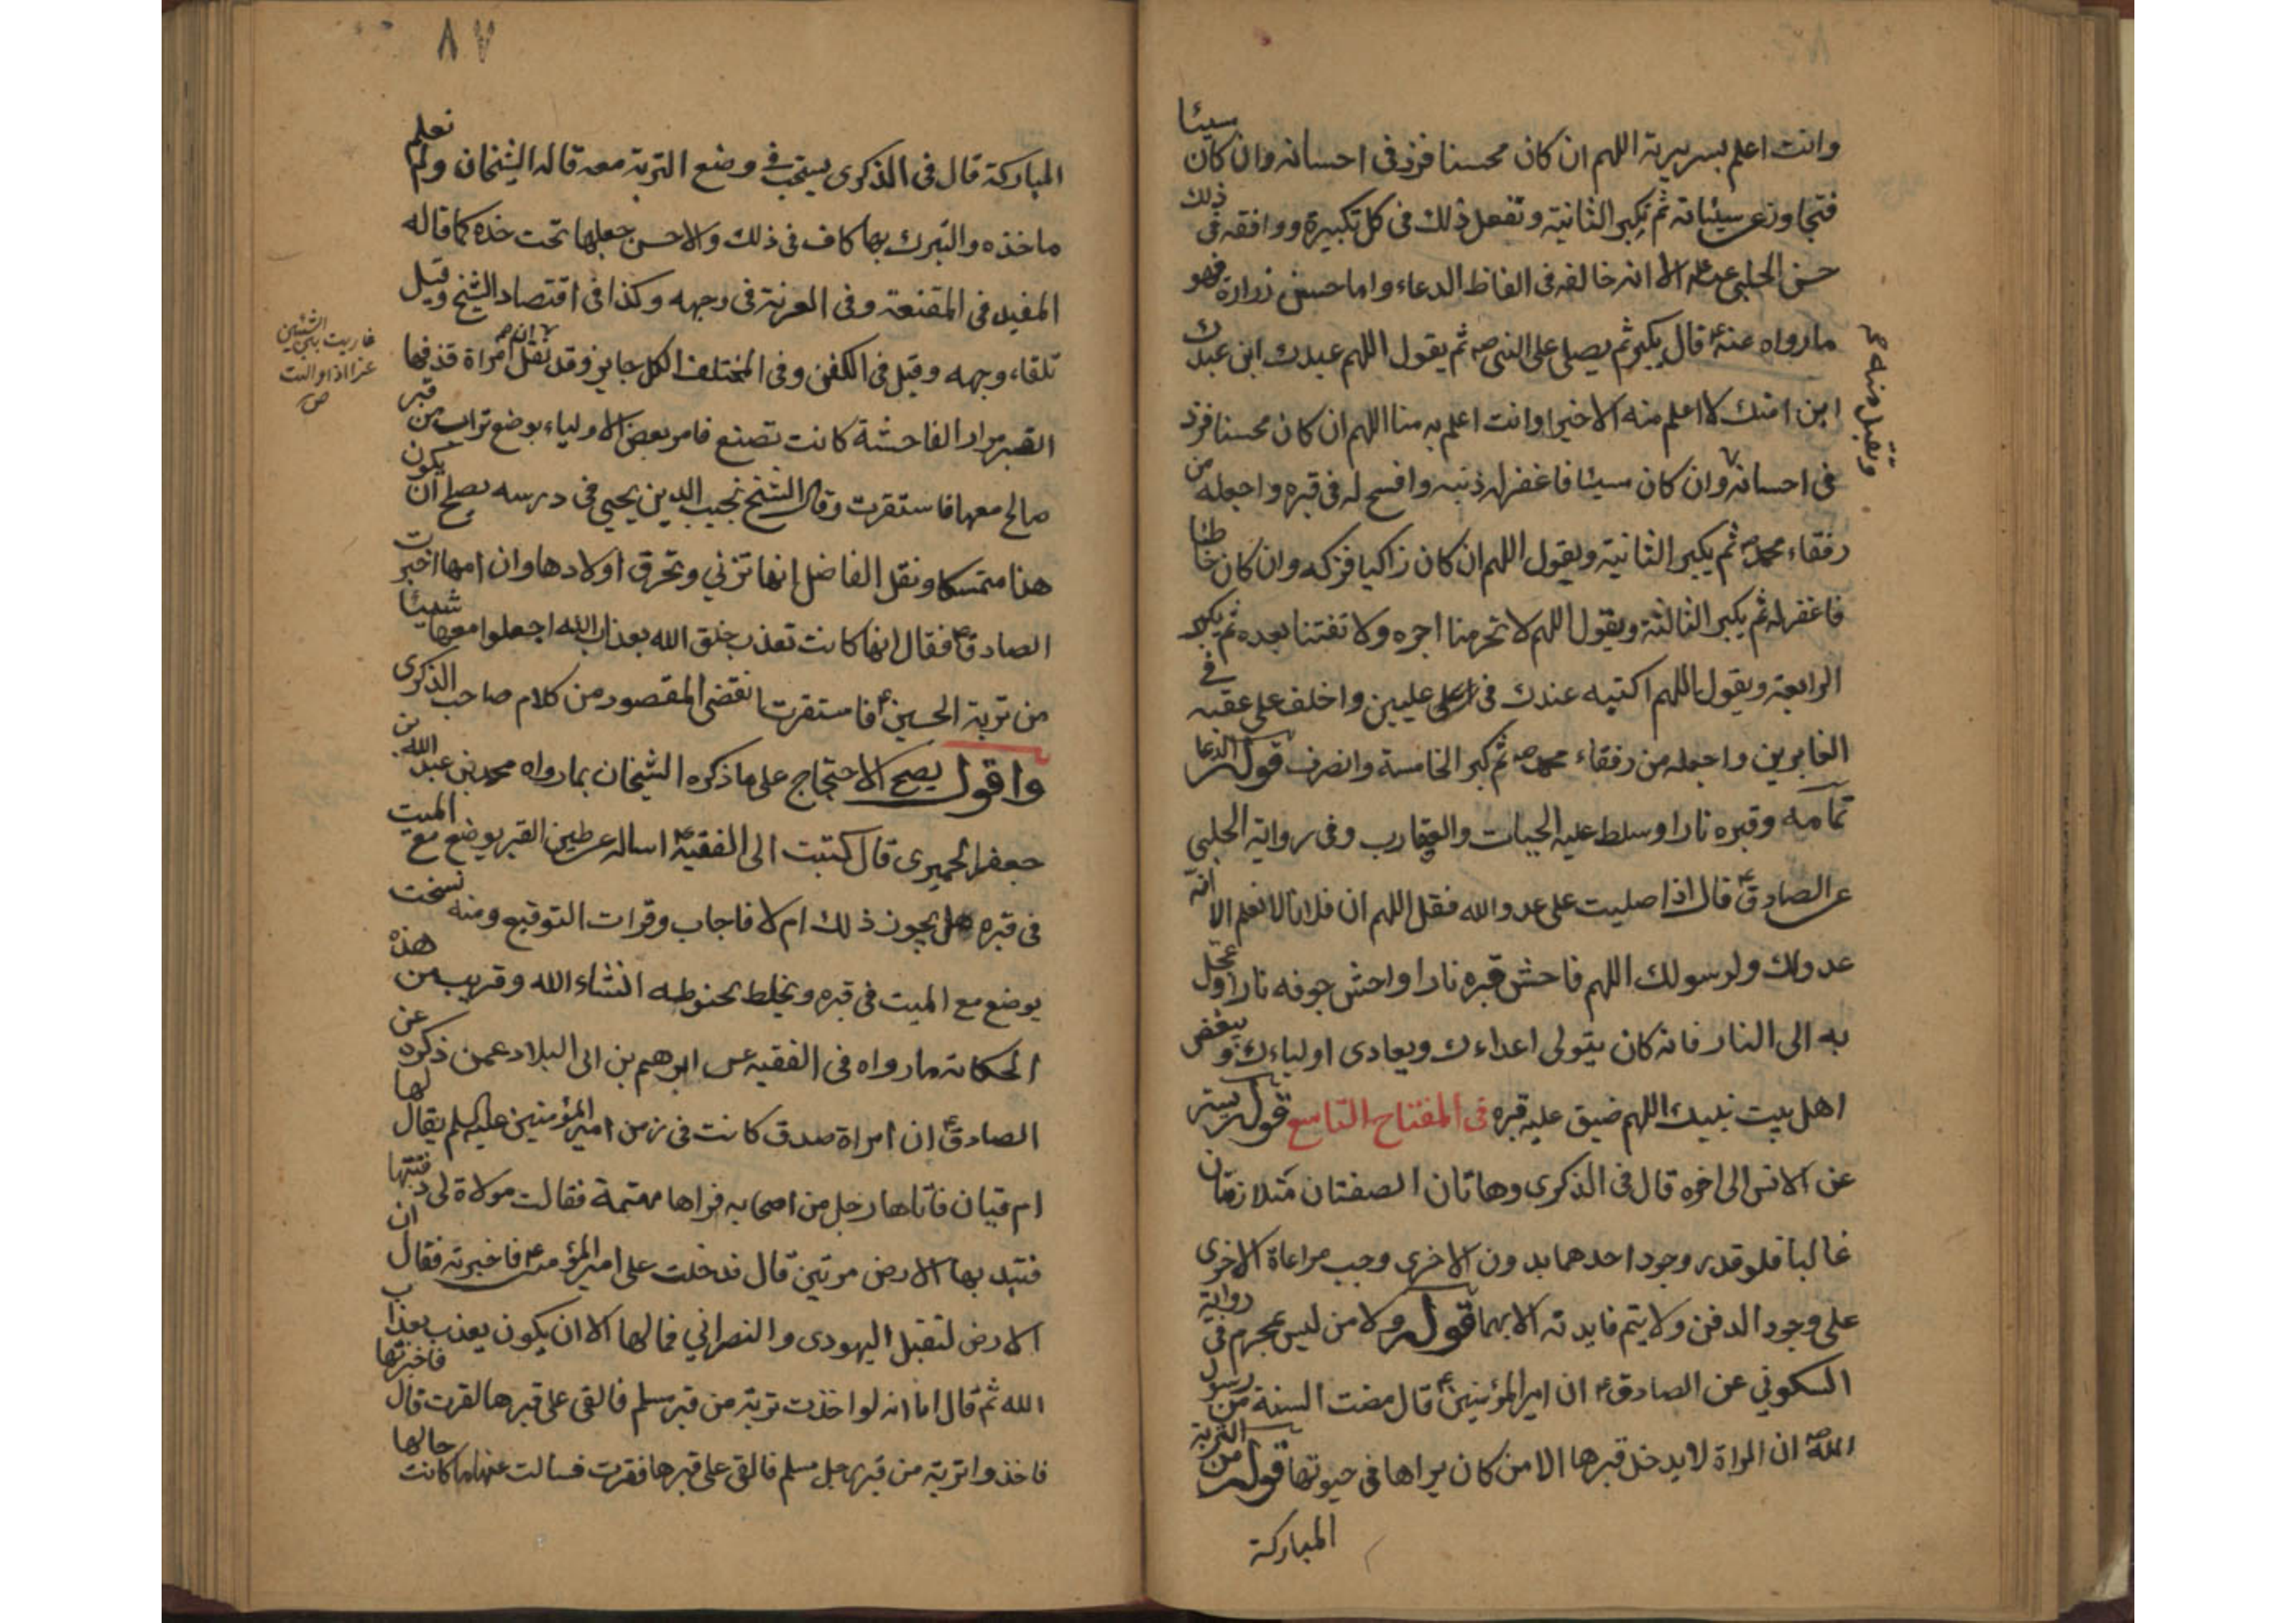 وانت اعلم بسريرته اللهم ان كان محسنا فزد فى احسانه وان كان سيئا
فتجاوز عن سيئاته ثم تكبر الثانية وتفعل ذلك فى كل تكبيرة ووافقه فى ذلك
حسن الحلبى عنه الا انه خالفه فى الفاظ الدعاء واما حسن زرارة فهو
مارواه عنه ع قال يكبر ثم يصلى على النبى ص ثم يقول اللهم عبدك ابن عبدك
ابن امتك لا اعلم منه الا خيرا وانت اعلم به منا اللهم ان كان محسنا فزد
فى احسانه وان كان سيئا فاغفر له ذنبه وافسح له فى قبره واجعله من
وتقبل منه
رفقاء محمد ص ثم يكبر الثانية ويقول اللهم ان كان زاكيا فزكه وان كان خاطئا
فاغفر له ثم يكبر الثالثة ويقول اللهم لا تحرمنا اجره ولا تفتنا بعده ثم يكبر
الرابعة ويقول اللهم اكتبه عندك فى اعلى عليين واخلف على عقبه فى
الغابرين واجعله من رفقاء محمد ص ثم كبر الخامسة وانصرف قوله الدعا
تمامه وقبره نارا وسلط عليه الحيات والعقارب وفى رواية الحلبى
عن الصادق ع قال اذا صليت على عدو الله فقل اللهم ان فلانا لا نعلم الا انه
عدو لك ولرسولك اللهم فاحش قبره نارا واحش جوفه نارا وعجل
به الى النار فانه كان يتولى اعداءك ويعادى اولياءك ويبغض
اهل بيت نبيك اللهم ضيق عليه قبره فى المفتاح التاسع قوله يستر
عن الانس الى اخره قال فى الذكرى وهاتان الصفتان متلازمتان
غالبا فلو قدر وجود احدهما بدون الاخرى وجب مراعاة الاخرى
على وجود الدفن ولا يتم فايدته الا بهما قوله ولا من ليس بمحرم فى رواية
السكوني عن الصادق ع ان امير المؤمنين ع قال مضت السنة من رسول
الله ص ان المراة لا يدخل قبرها الا من كان يراها فى حيوتها قوله من التربة
المباركة
٨٧
المباركة قال فى الذكرى يستحب وضع التربة معه قاله الشيخان ولم نعلم
ماخذه والتبرك بها كاف فى ذلك والاحسن جعلها تحت خده كما قاله
المفيد فى المقنعة وفى العزية فى وجهه وكذا فى اقتصاد الشيخ وقيل
تلقاء وجهه وقيل فى الكفن وفى المختلف الكل جايز وقد نقل ان امراة قذفها
القبر مرارا لفاحشة كانت تصنع فامر بعض الاولياء بوضع تراب من قبر
صالح معها فاستقرت وقال الشيخ نجيب الدين يحيى فى درسه يصلح ان يكون
هذا متمسكا ونقل الفاضل انها تزني وتحرق اولادها وان امها اخبرت
الصادق ع فقال انها كانت تعذب خلق الله بعذاب الله اجعلوا معها شيئا
من تربة الحسين ع فاستقرت انقضى المقصود من كلام صاحب الذكرى
واقول يصح الاحتجاج على ماذكره الشيخان بما رواه محمد بن عبد الله بن
جعفر الحميرى قال كتبت الى الفقيه ع اساله عن طين القبر يوضع مع الميت
فى قبره هل يجوز ذلك ام لا فاجاب وقرات التوقيع ومنه نسخت
يوضع مع الميت فى قبره ويخلط بحنوطه انشاء الله وقريب من هذه
الحكاية مارواه فى الفقيه عن ابرهيم بن ابى البلاد عمن ذكره عن
الصادق ع ان امراة صدق كانت فى زمن امير المؤمنين عليه السلم يقال لها
ام قيان فاتاها رجل من اصحابه فراها مهتمة فقالت مولاة لى دفنتها
فنبذ بها الارض مرتين قال فدخلت على امير المؤمنين ع فاخبرته فقال ان
الارض لتقبل اليهودى والنصراني فمالها الا ان يكون يعذب بعذاب
الله ثم قال اما انه لو اخذت تربة من قبر مسلم فالقى على قبرها لقرت قال فاخبرتها
فاخذوا تربة من قبر رجل مسلم فالقى على قبرها فقرت فسالت عنها ما كانت حالها
غاريت بين الشيئين
اذا واليت
ص